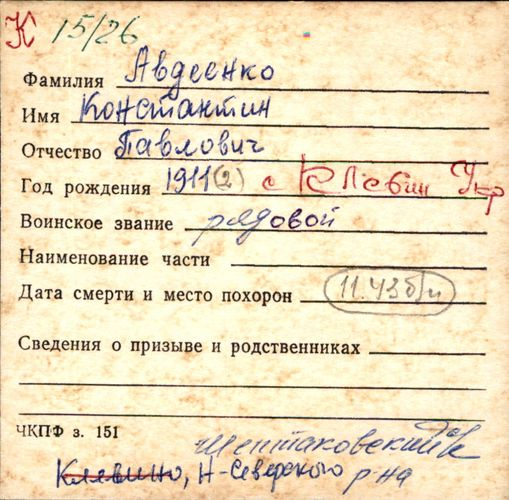 К 15/26
Фамилия Авдеенко
Имя Константин
Отчество Павлович
Год рождения 1911(2) с Клевин Укр
Воинское звание рядовой
Наименование части
Дата смерти и место похорон 11.43 б/и
Сведения о призыве и родственниках
ЧКПФ з. 151
Шептаковский
Клевино, Н-Северского р-на